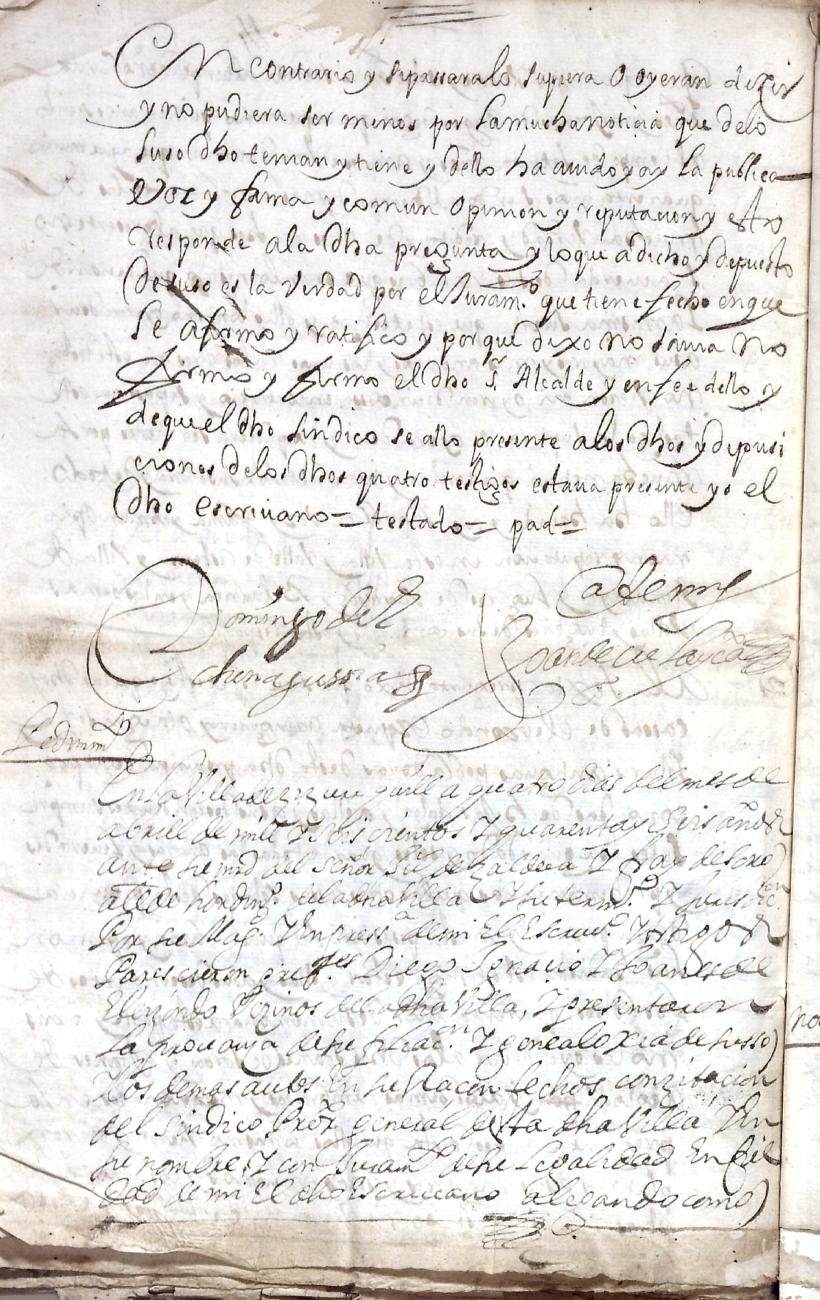 En contrario y si passara lo supiera O oyeran dezir
y no pudiera ser menos por la mucha noticia que delo
suso dho tenian y tiene y dello ha auido y ay la publica
Voz y fama y comun opinion y reputacion y esto
responde ala dha pregunta y lo que a dicho y depuesto
De suso es la verdad por el Juramto que tiene fecho en que
se afirmo y ratifico y porque dixo no sauia No
firmo y firmo el dho sr Alcalde y en fee dello y
de que el dho sindico se allo presente a los dhos y deposi
ciones delos dhos quatro testigos estaua presente yo el
Dho escriuano = testado = pad =
Domingo de
Echenagussia
Ante my
Joan de
Pedimto
En la Villa de a quatro dias del mes de
abrill de mill y seis cientos y quarenta y seis años
ante su md del señor de
alcde hordino en la dha Villa y su termo y Jurisdicon
Por su Magd y en pressa de mi El Escriuo y testigos
Parescieron presentes Diego Ignacio y Joanes de
Elizondo Vezinos de la dha Villa, y presentaron
La prouança de su filiacon y genealoxia de susso
y los demas autos En su Racon fechos con zitacion
del sindico Pror general desta dha Villa y En
su nombre y con Juramto de su Legalidad En fil
dad de mi El dho Escriuano alegando como
no